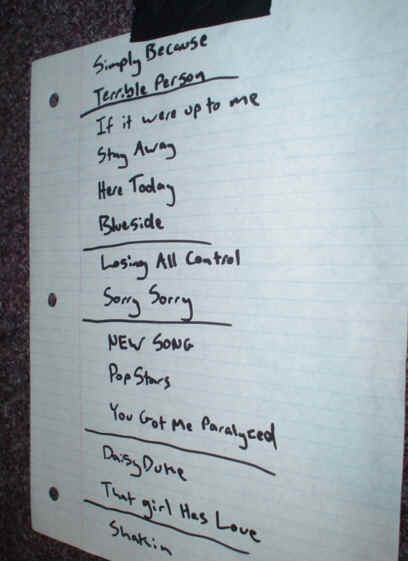 Simply Because
Terrible Person
If it were up to me
Stay Away
Here Today
Blueside
Losing All Control
Sorry Sorry
NEW SONG
Pop Stars
You Got Me Paralyzed
Daisy Duke
That girl Has Love
Shakin